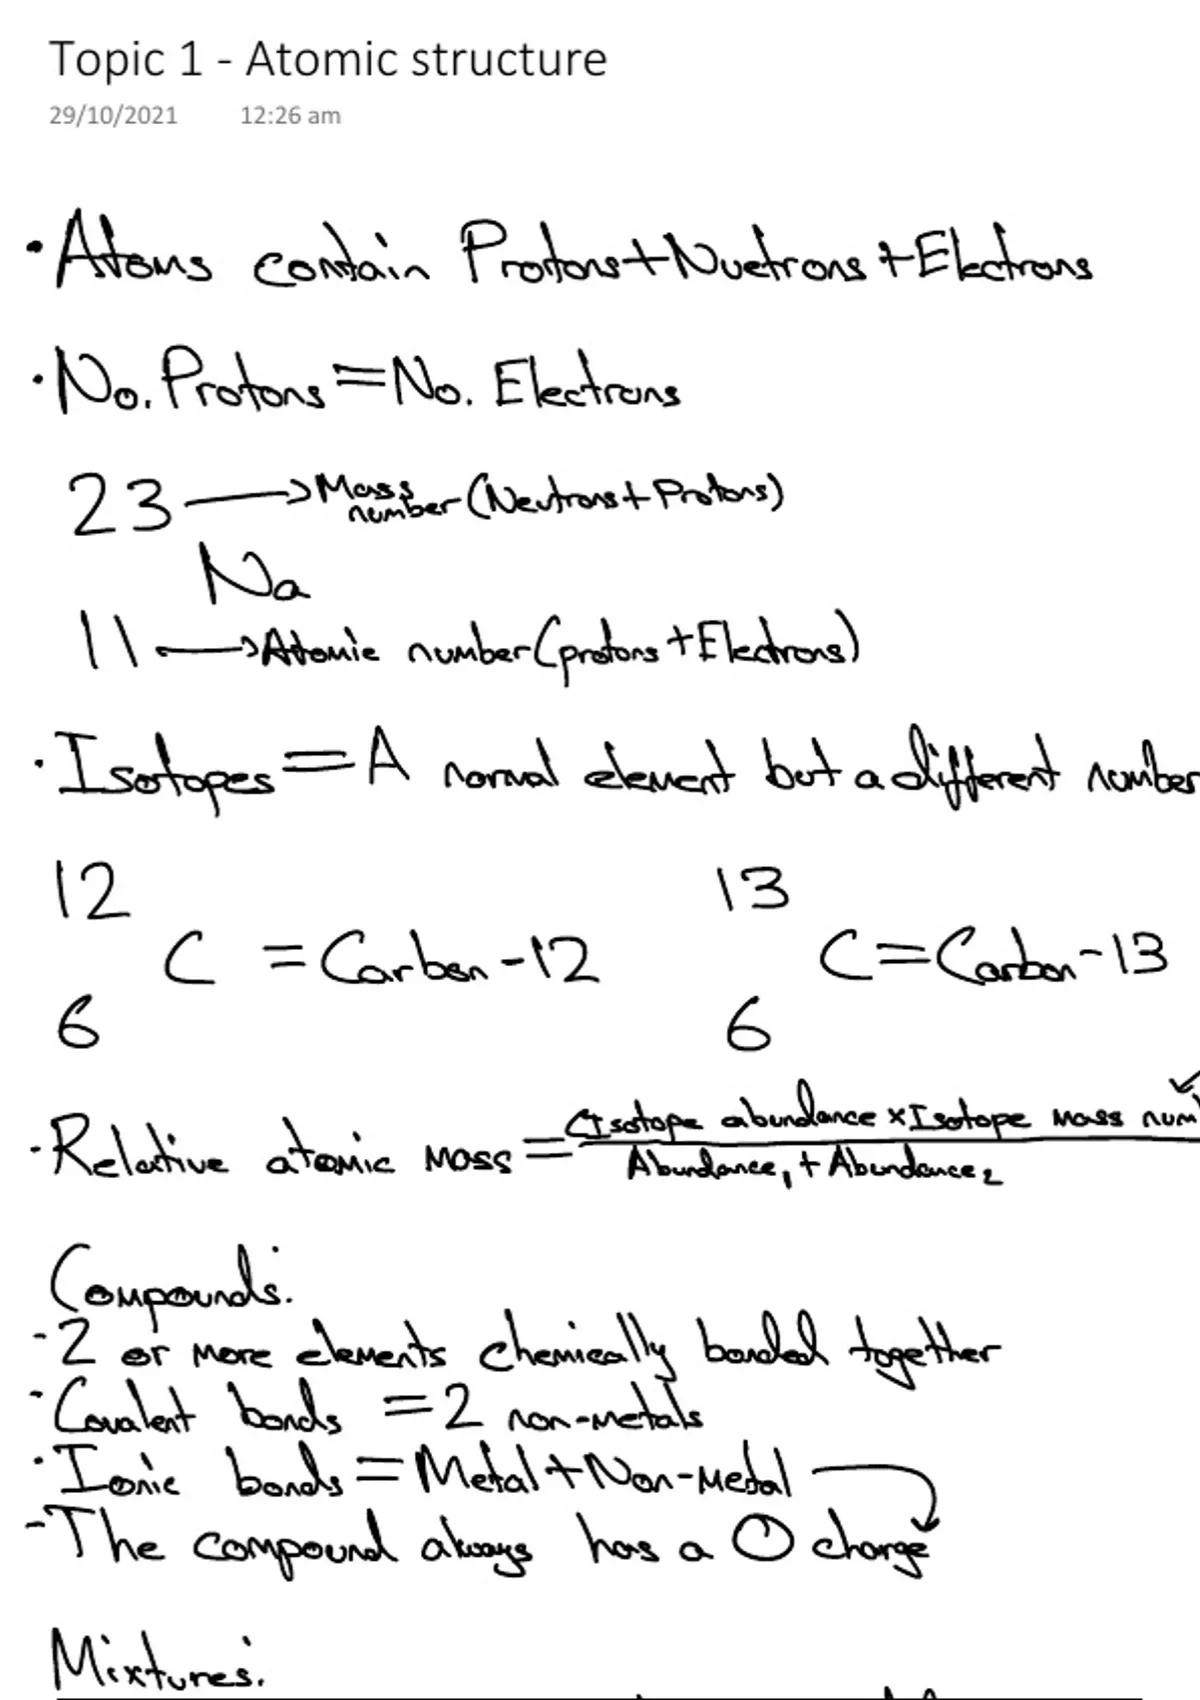 Topic 1 - Atomic structure
29/10/2021 12:26 am
· Atoms contain Protons + Nuetrons + Electrons
· No. Protons = No. Electrons
23 → Mass number (Neutrons + Protons)
Na
11 → Atomic number (protons + Electrons)
· Isotopes = A normal element but a different number
12 13
C = Carbon-12 C = Carbon-13
6 6
· Relative atomic mass = (Isotope abundance × Isotope mass num
Abundance₁ + Abundance₂
Compounds:
- 2 or more elements chemically bonded together
· Covalent bonds = 2 non-metals
· Ionic bonds = Metal + Non-metal
- The compound always has a 0 charge
Mixtures: